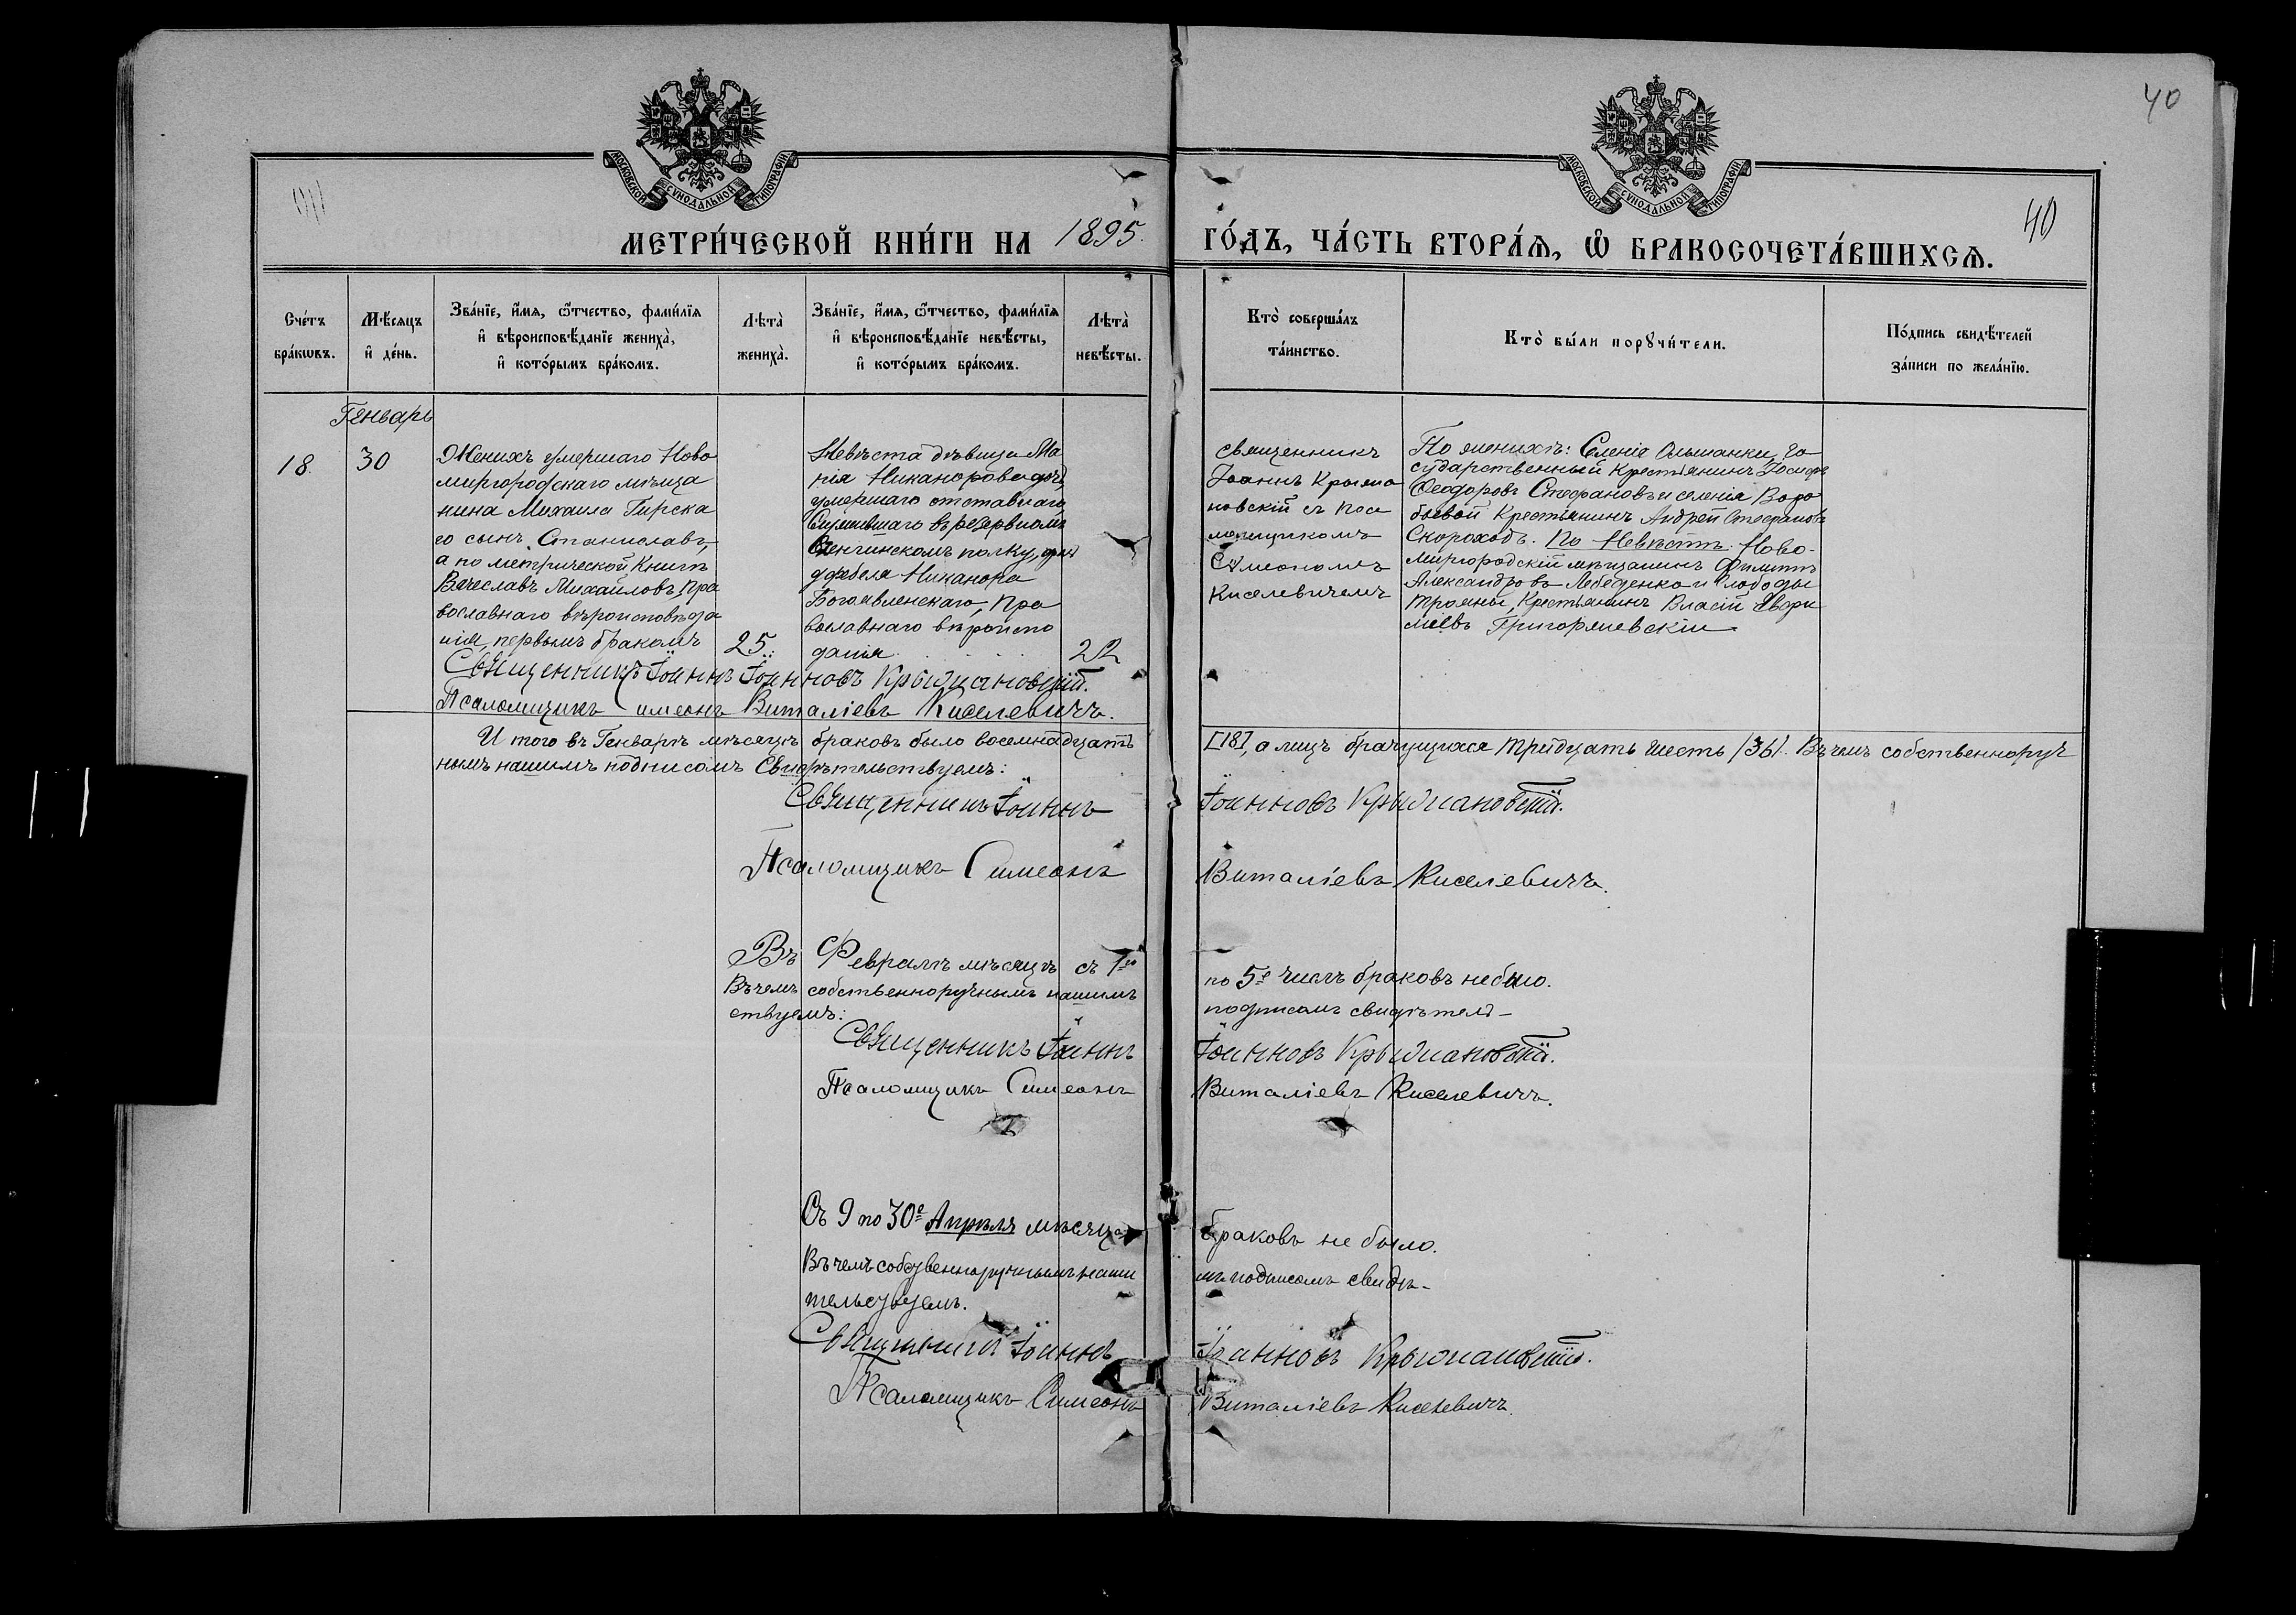 40
МОСКОВСКОЙ СѴНОДАЛЬНОЙ ТИПОГРАФІИ
МОСКОВСКОЙ СѴНОДАЛЬНОЙ ТИПОГРАФІИ
40
МЕТРИ́ЧЕСКОЙ КНИ́ГИ НА 1895.
ГО́ДЪ, ЧА́СТЬ ВТОРА́Ѧ, Ѽ БРАКОСОЧЕТА́ВШИХСѦ.
Сче́тъ бра́кѡвъ.
Мѣ́сяцъ и҆ де́нь.
Зва́нїе, и҆́мя, ѻ҆́тчество, фами́лїя
и҆ вѣроисповѣ́данїе жениха̀,
и҆ кото́рымъ бра́комъ.
Лѣта̀ жениха̀.
Зва́нїе, и҆́мя, ѻ҆́тчество, фами́лїя
и҆ вѣроисповѣ́данїе невѣ́сты,
и҆ кото́рымъ бра́комъ.
Лѣта̀ невѣ́сты.
Кто̀ соверша́лъ
та́инство.
Кто̀ бы́ли порꙋчи́тели.
По́дпись свидѣ́телей
за́писи по жела́нїю.
Генварь
18.
30
Женихъ умершаго Ново
миргородскаго мѣща
нина Михаила Гирска
го сынъ Станиславъ,
а по метрической Книгѣ
Вячеславъ Михайловъ, пра
вославнаго вѣроисповѣда
нія, первымъ бракомъ
25.
Невѣста дѣвица Ма
рія Никанорова дочь
умершаго отставнаго,
Служившаго въ резервномъ
полку, фель
дфебеля Никанора
Богоявленскаго, Пра
вославнаго вѣроиспо
данія
22
Священникъ
Іоаннъ Крыжа
новскій съ Пса
ломщикомъ
Сѵмеономъ
Киселевичемъ
По женихѣ: Селенія Ольшанки, Го
сударственный Крестьянинъ Іосифъ
Ѳеодоровъ Стефановъ и селенія Воро
бьевой Крестьянинъ Андрей Стефановъ
Скороходъ. По Невѣстѣ: Ново-
миргородскій мѣщанинъ Филиппъ
Александровъ Лебеденко и Слободы
Трояны, Крестьянинъ Власій
Григоряшевскій
Священникъ Іоаннъ Іоанновъ Крыжановскій.
Псаломщикъ Симеонъ Виталіевъ Киселевичъ.
И того въ Генварѣ мѣсяцѣ браковъ было восемнадцать [18], а лицъ брачущихся тридцать шесть /36/. Въ чемъ собственноруч
нымъ нашимъ подписомъ Свидѣтельствуемъ:
Священникъ Іоаннъ Іоанновъ Крыжановскій.
Псаломщикъ Симеонъ Виталіевъ Киселевичъ.
Въ Февралѣ мѣсяцѣ съ 1го по 5е число браковъ небыло.
Въ чемъ собственноручнымъ нашимъ подписомъ свидѣтель-
ствуемъ:
Священникъ Іоаннъ Іоанновъ Крыжановскій.
Псаломщикъ Симеонъ Виталіевъ Киселевичъ.
Съ 9 по 30е Апрѣля мѣсяца браковъ не было.
Въ чемъ собственноручнымъ наши мъ подписомъ свидѣ-
тельствуемъ.
Священникъ Іоаннъ Іоанновъ Крыжановскій.
Псаломщикъ Симеонъ Виталіевъ Киселевичъ.